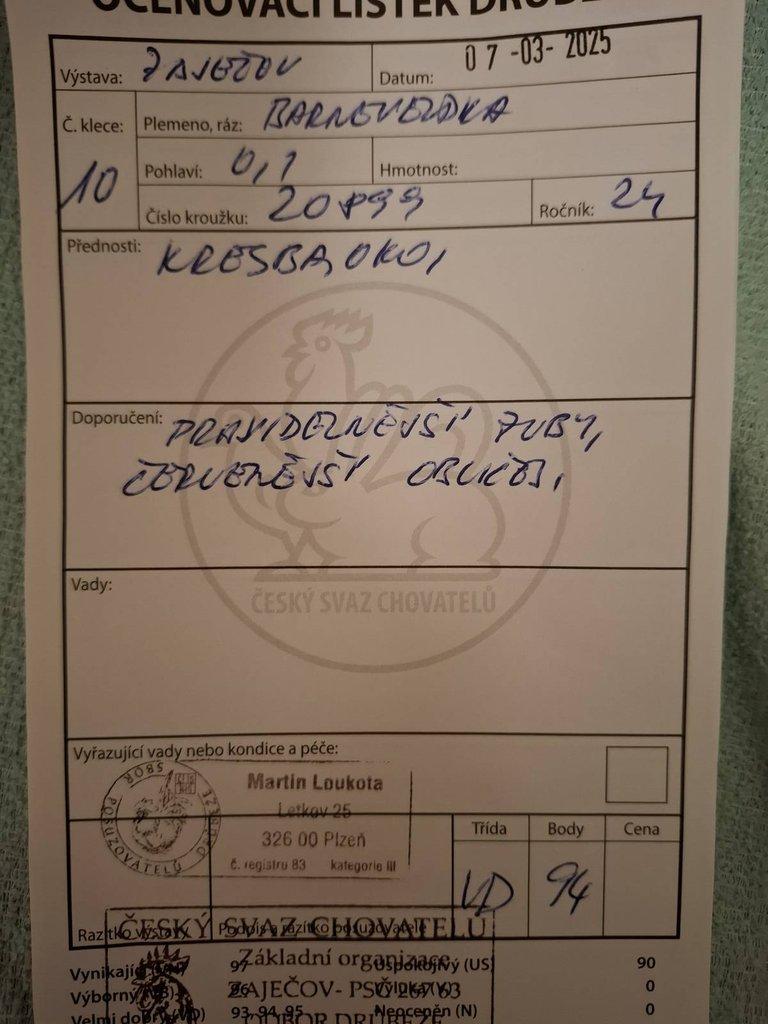 OCEŇOVACÍ LÍSTEK DRŮBE
Výstava: ZAJEČOV Datum: 07-03-2025
Č. klece: 10 Plemeno, ráz: BARNEVELDKA
Pohlaví: 0,1 Hmotnost:
Číslo kroužku: 20899 Ročník: 24
Přednosti: KRESBA, OKO,
Doporučení: PRAVIDELNĚJŠÍ ZUBY,
ČERVENĚJŠÍ OBLIČEJ,
ČESKÝ SVAZ CHOVATELŮ
Vady:
Vyřazující vady nebo kondice a péče:
SBOR POSUZOVATELŮ DRŮBEŽE
Martin Loukota
Letkov 25
326 00 Plzeň
č. registru 83 kategorie III
Třída Body Cena
VD 94
Razítko výstavy Podpis a razítko posuzovatele
ČESKÝ SVAZ CHOVATELŮ
Základní organizace
ZAJEČOV - PSČ 267 63
ODBOR DRŮBEŽE
Vynikající 97 Uspokojivý (US) 90
Výborný 96 Výluka (V) 0
Velmi dobrý (VD) 93, 94, 95 Neoceněn (N) 0